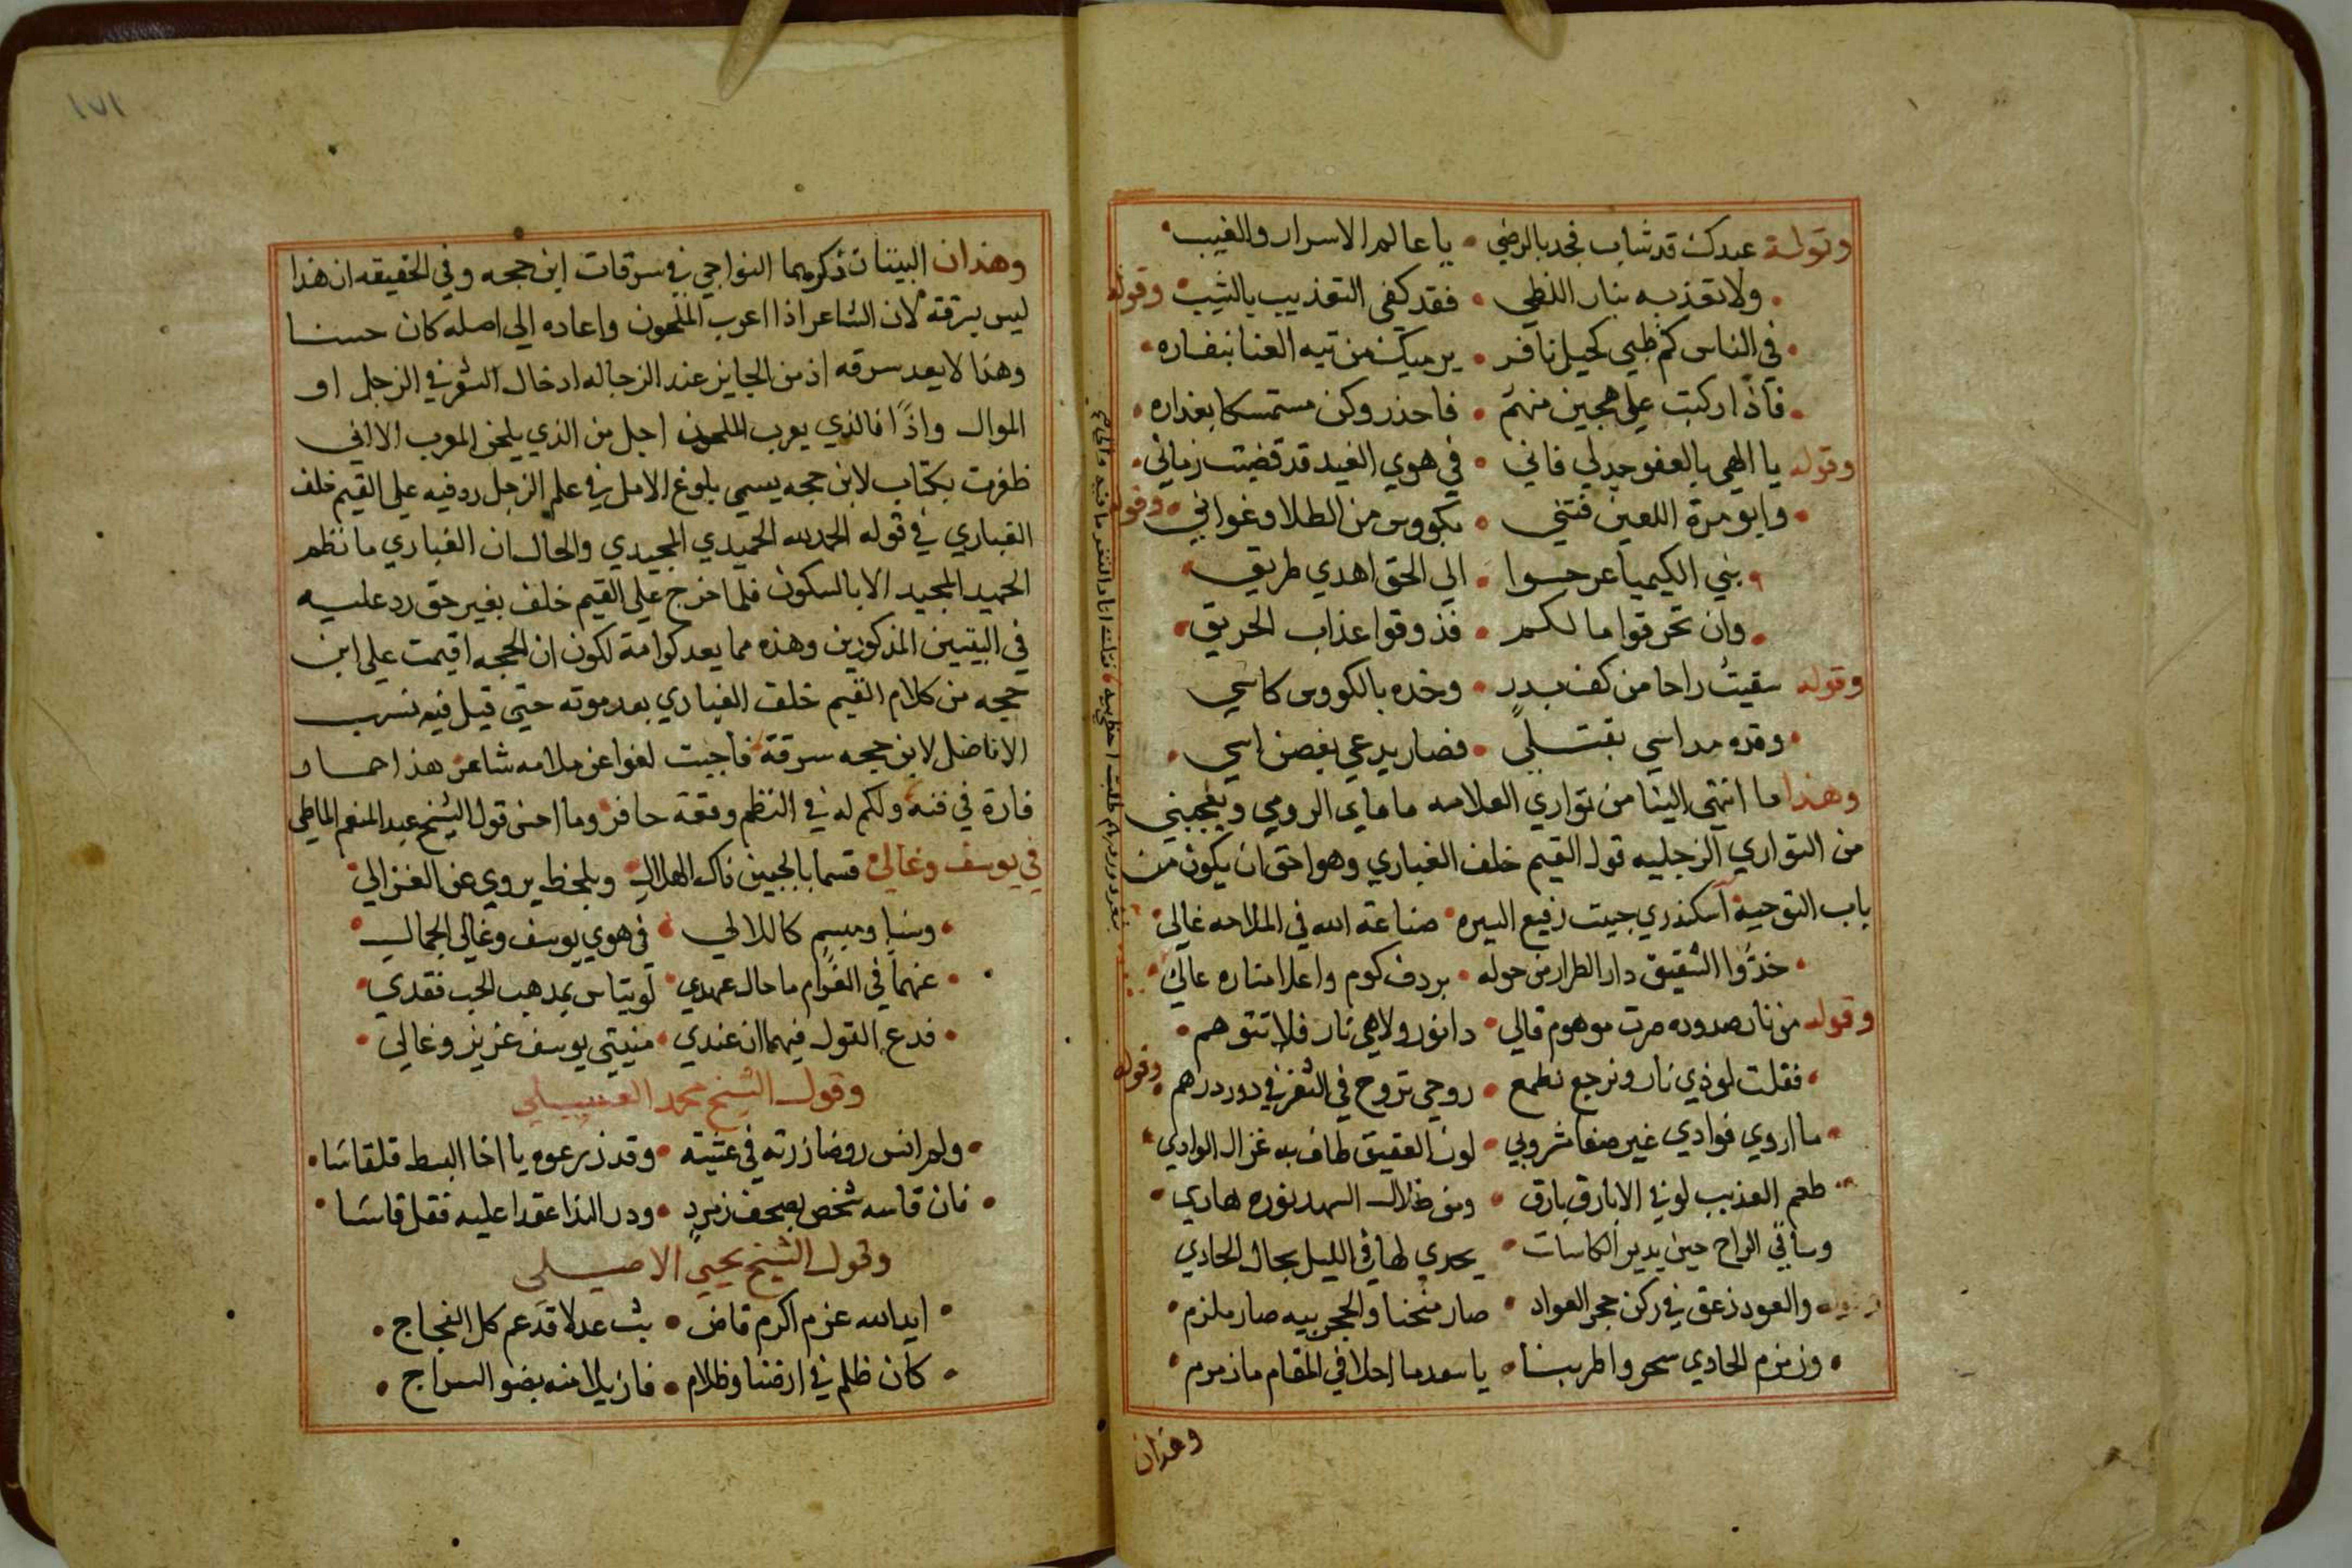 وقوله عبدك قد شاب فجد بالرضي • يا عالم الاسرار والغيب •
• ولا تعذبه بنار اللظي • فقد كفي التعذيب بالشيب وقوله
• في الناس كم ظبي كحيل نافر • يرميك من تيه العنا بنفاره •
• فاذا ركبت علي هجين منهم • فاحذر وكن مستمسكا بعذاره •
وقوله يا الهي بالعفو جد لي فاني • في هوي الغيد قد قضيت زماني •
• وابو مرة اللعين فتني • بكووس من الطلا وغواني • وقوله
• بني الكيميا عرجوا • الي الحق اهدي طريق •
• وان تحرقوا مالكم • فذوقوا عذاب الحريق •
وقوله سقيت راحا من كف بدر • وخده بالكووس كاسي
• وقده مداسي بقتلي • فصار يدعي بغصن اسي •
وهذا ما انتهي الينا من تواري العلامه ماماي الرومي ويعجبني
من التواري الزجليه قول القيم خلف الغباري وهو احق ان يكون من
باب التوجيه اسكندري جيت رفيع السيره • صناعة الله في الملاحه غالي
• خدوا الشقيق دار الطراز من حوله • بردف كوم واعلا مناره عالي •
وقوله من نار صدوده صرت موهوم قالي • دا نور ولا هي نار فلا تتوهم •
• فقلت لو ذي نار ونرجع نطمع • روحي تروح في الثغر في دور درهم • وقوله
• ما اروي فوادي غير صفا مشروبي • لون العقيق طاف به غزال الوادي •
• طعم العذيب لو في الابارق بارق • ومن ظلال السهد نوره هادي •
وساقي الراح حين يدير الكاسات • يحدي لها في الليل بحال الحادي
وقوله والعود زعق في ركن حجر العواد • صار منحنا والحجر بيه صار ملزم •
• وزمزم الحادي سحر واطربنا • يا سعد ما احلا في المقام ما زمزم •
وهذان
١٧١
وهذان البيتان ذكرهما النواجي في سرقات ابن حجه وفي الحقيقه ان هذا
ليس بسرقة لان الشاعر اذا اعرب الملحون واعاده الي اصله كان حسنا
وهنا لا يعد سرقه اذ من الجايز عند الزجاله ادخال الشعر في الزجل او
الموال واذا فالذي يعرب الملحون اجل من الذي يلحن المعرب الا اني
ظفرت بكتاب لابن حجه يسمي بلوغ الامل في علم الزجل رد فيه علي القيم خلف
الغباري في قوله الحمد لله الحميدي المجيدي والحال ان الغباري ما نظم
الحميد المجيد الا بالسكون فلما خرج علي القيم خلف بغير حق رد عليه
في البيتين المذكورين وهذه مما يعد كرامة لكون ان الحجه اقيمت علي ابن
حجه من كلام القيم خلف الغباري بعد موته حتي قيل فيه نسب
الافاضل لابن حجه سرقة فاجبت لغوا عن ملامه شاعر هذا حمار
فارة في فنه ولكم له في النظم وقعة حافر وما احسن قول الشيخ عبد المنعم الماطي
في يوسف وغالي قسما بالجبين ذاك الهلال • وبلحظ يروي عن الغزالي
• وسنا ومبسم كاللالي • في هوي يوسف وغالي الجمال •
• عنهما في الغرام ما حال عهدي • لو يتاس بمذهب الحب فقدي •
• فدع القول فيهما ان عندي • منيتي يوسف عزيز وغالي •
وقول الشيخ محمد العسيلي
• ولم انس روضا زرته في عشية • وقد زرعوه يا اخا البسط قلقاشا •
• فان قاسه شخص بصحف زمرد • ودر الندا عقدا عليه فقل قاشا •
وقول الشيخ يحيي الاصيلي
• ايد الله عزم اكرم قاض • بث عدلا قد عم كل الفجاج •
• كان ظلم في ارضنا وظلام • فازيلا منه بضو السراج •